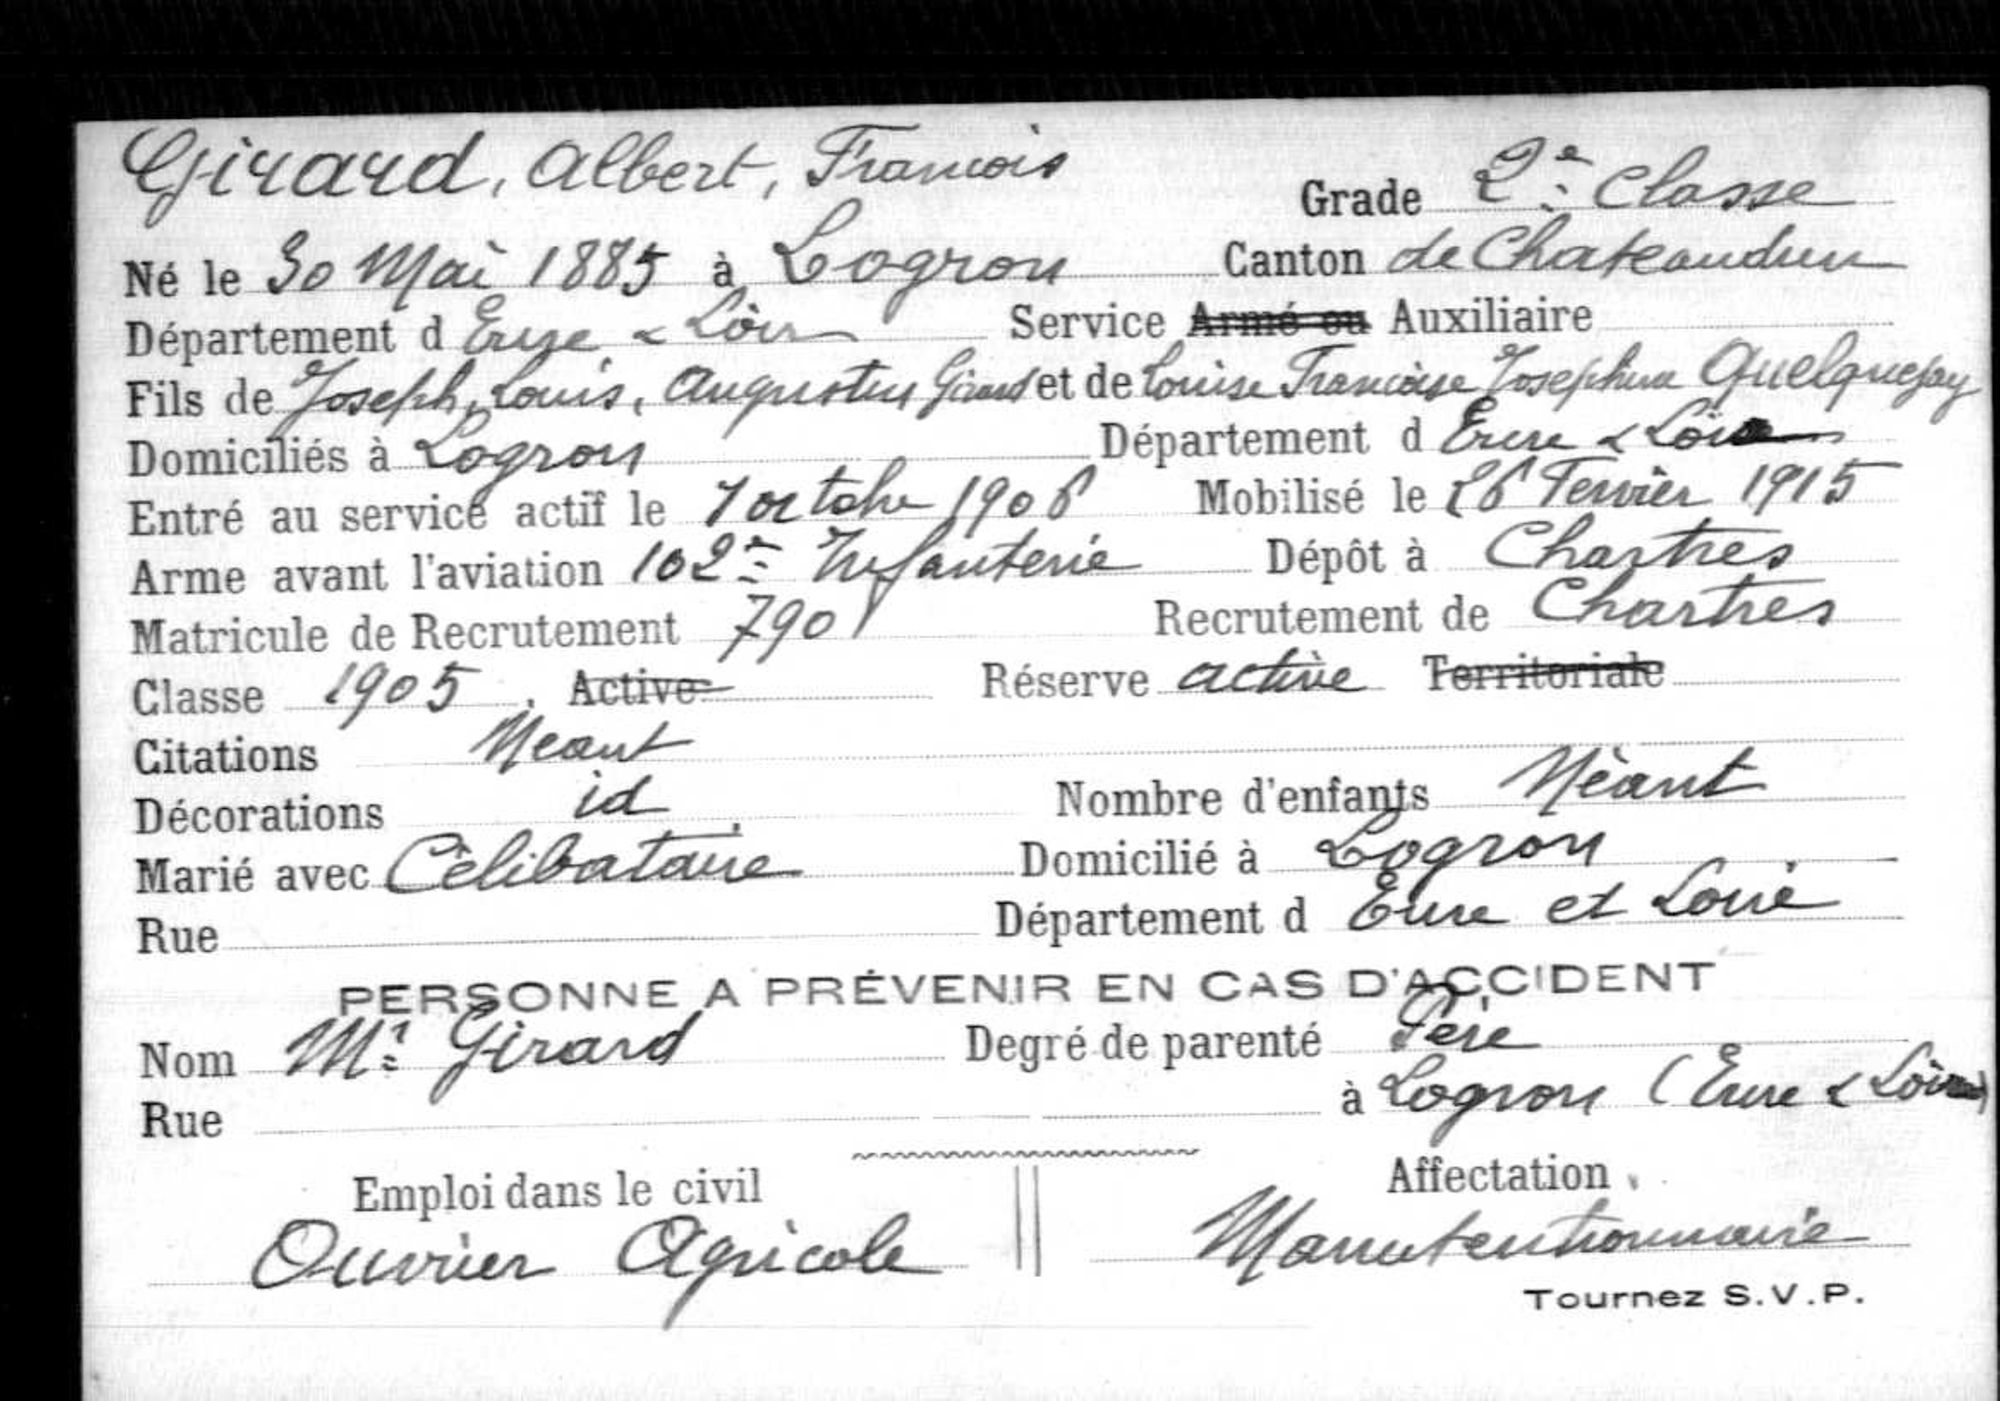 Girard, Albert, Francois
Grade 2e Classe
Né le 30 Mai 1885 à Logron Canton de Chateaudun
Département d Eure & Loir Service Armé ou Auxiliaire
Fils de Joseph, Louis, Augustin Girard et de Louise Francoise Josephine Quelquejay
Domiciliés à Logron Département d Eure & Loir
Entré au service actif le 7 octobre 1906 Mobilisé le 26 Fevrier 1915
Arme avant l'aviation 102e Infanterie Dépôt à Chartres
Matricule de Recrutement 790 Recrutement de Chartres
Classe 1905 Active Réserve active Territoriale
Citations Neant
Décorations id Nombre d'enfants Néant
Marié avec Célibataire Domicilié à Logron
Rue Département d Eure et Loire
PERSONNE A PRÉVENIR EN CAS D'ACCIDENT
Nom Mr Girard Degré de parenté Père
Rue à Logron (Eure & Loir)
Emploi dans le civil Affectation
Ouvrier Agricole Manutentionnaire
Tournez S.V.P.